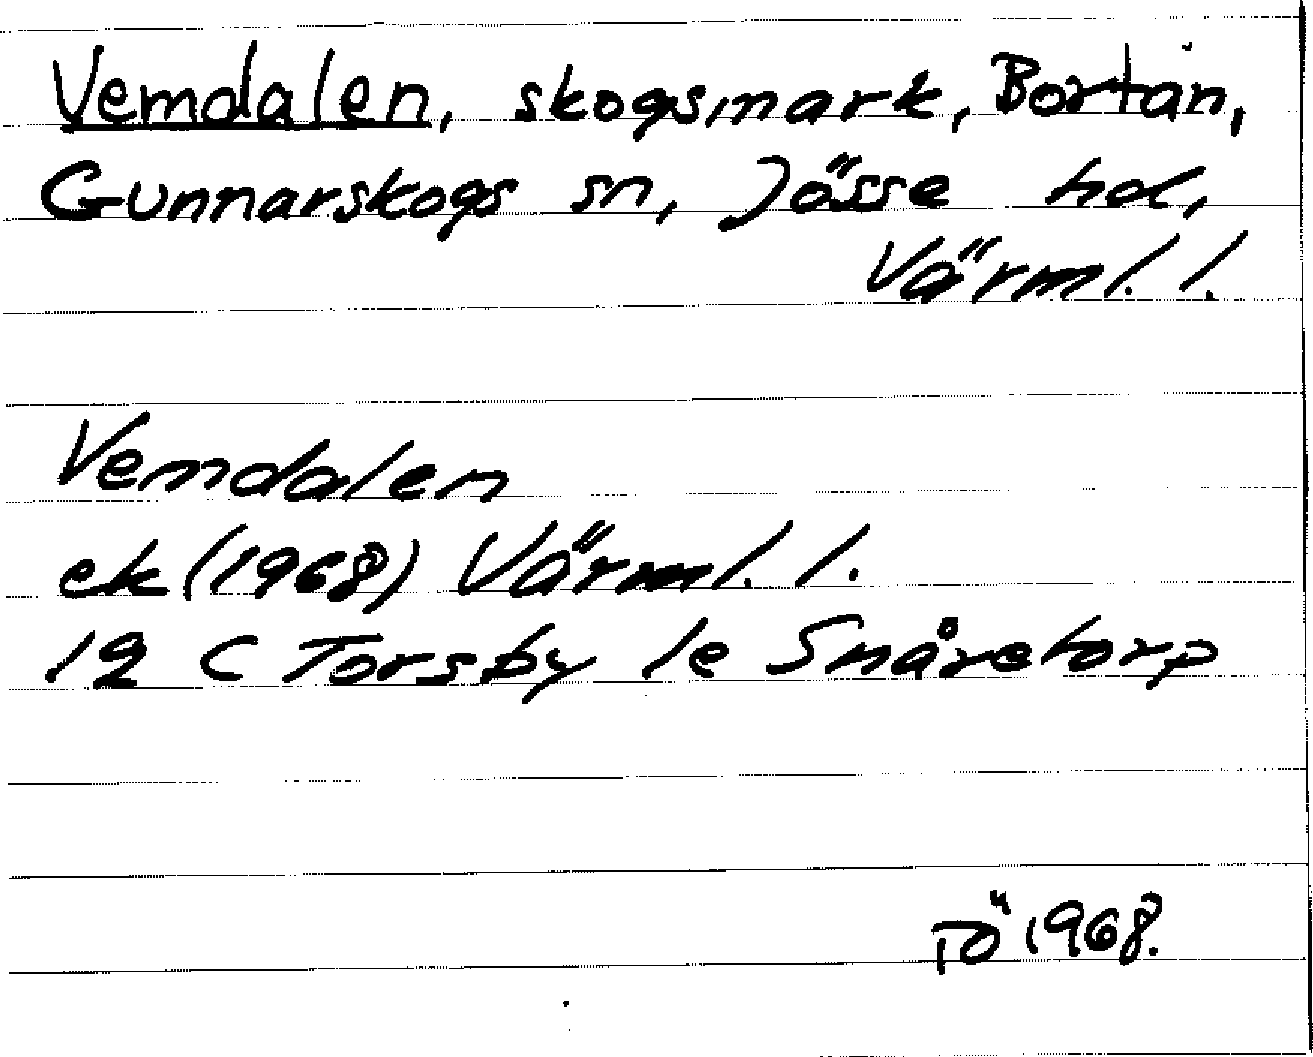 Vemdalen, skogsmark, Bortan,
Gunnarskogs sn, Jösse hd,
Värml. l.
Vemdalen
ek (1968) Värml. l.
12 C Torsby 1e Småretorp
TÖ 1968.